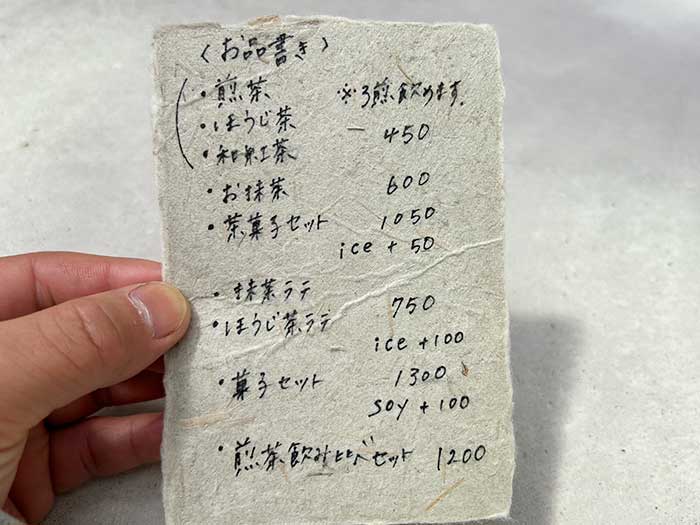 〈お品書き〉
・煎茶 ※3煎飲めます。
・ほうじ茶 450
・和紅茶
・お抹茶 600
・茶菓子セット 1050
ice + 50
・抹茶ラテ
・ほうじ茶ラテ 750
ice +100
・菓子セット 1300
soy + 100
・煎茶飲み比べセット 1200